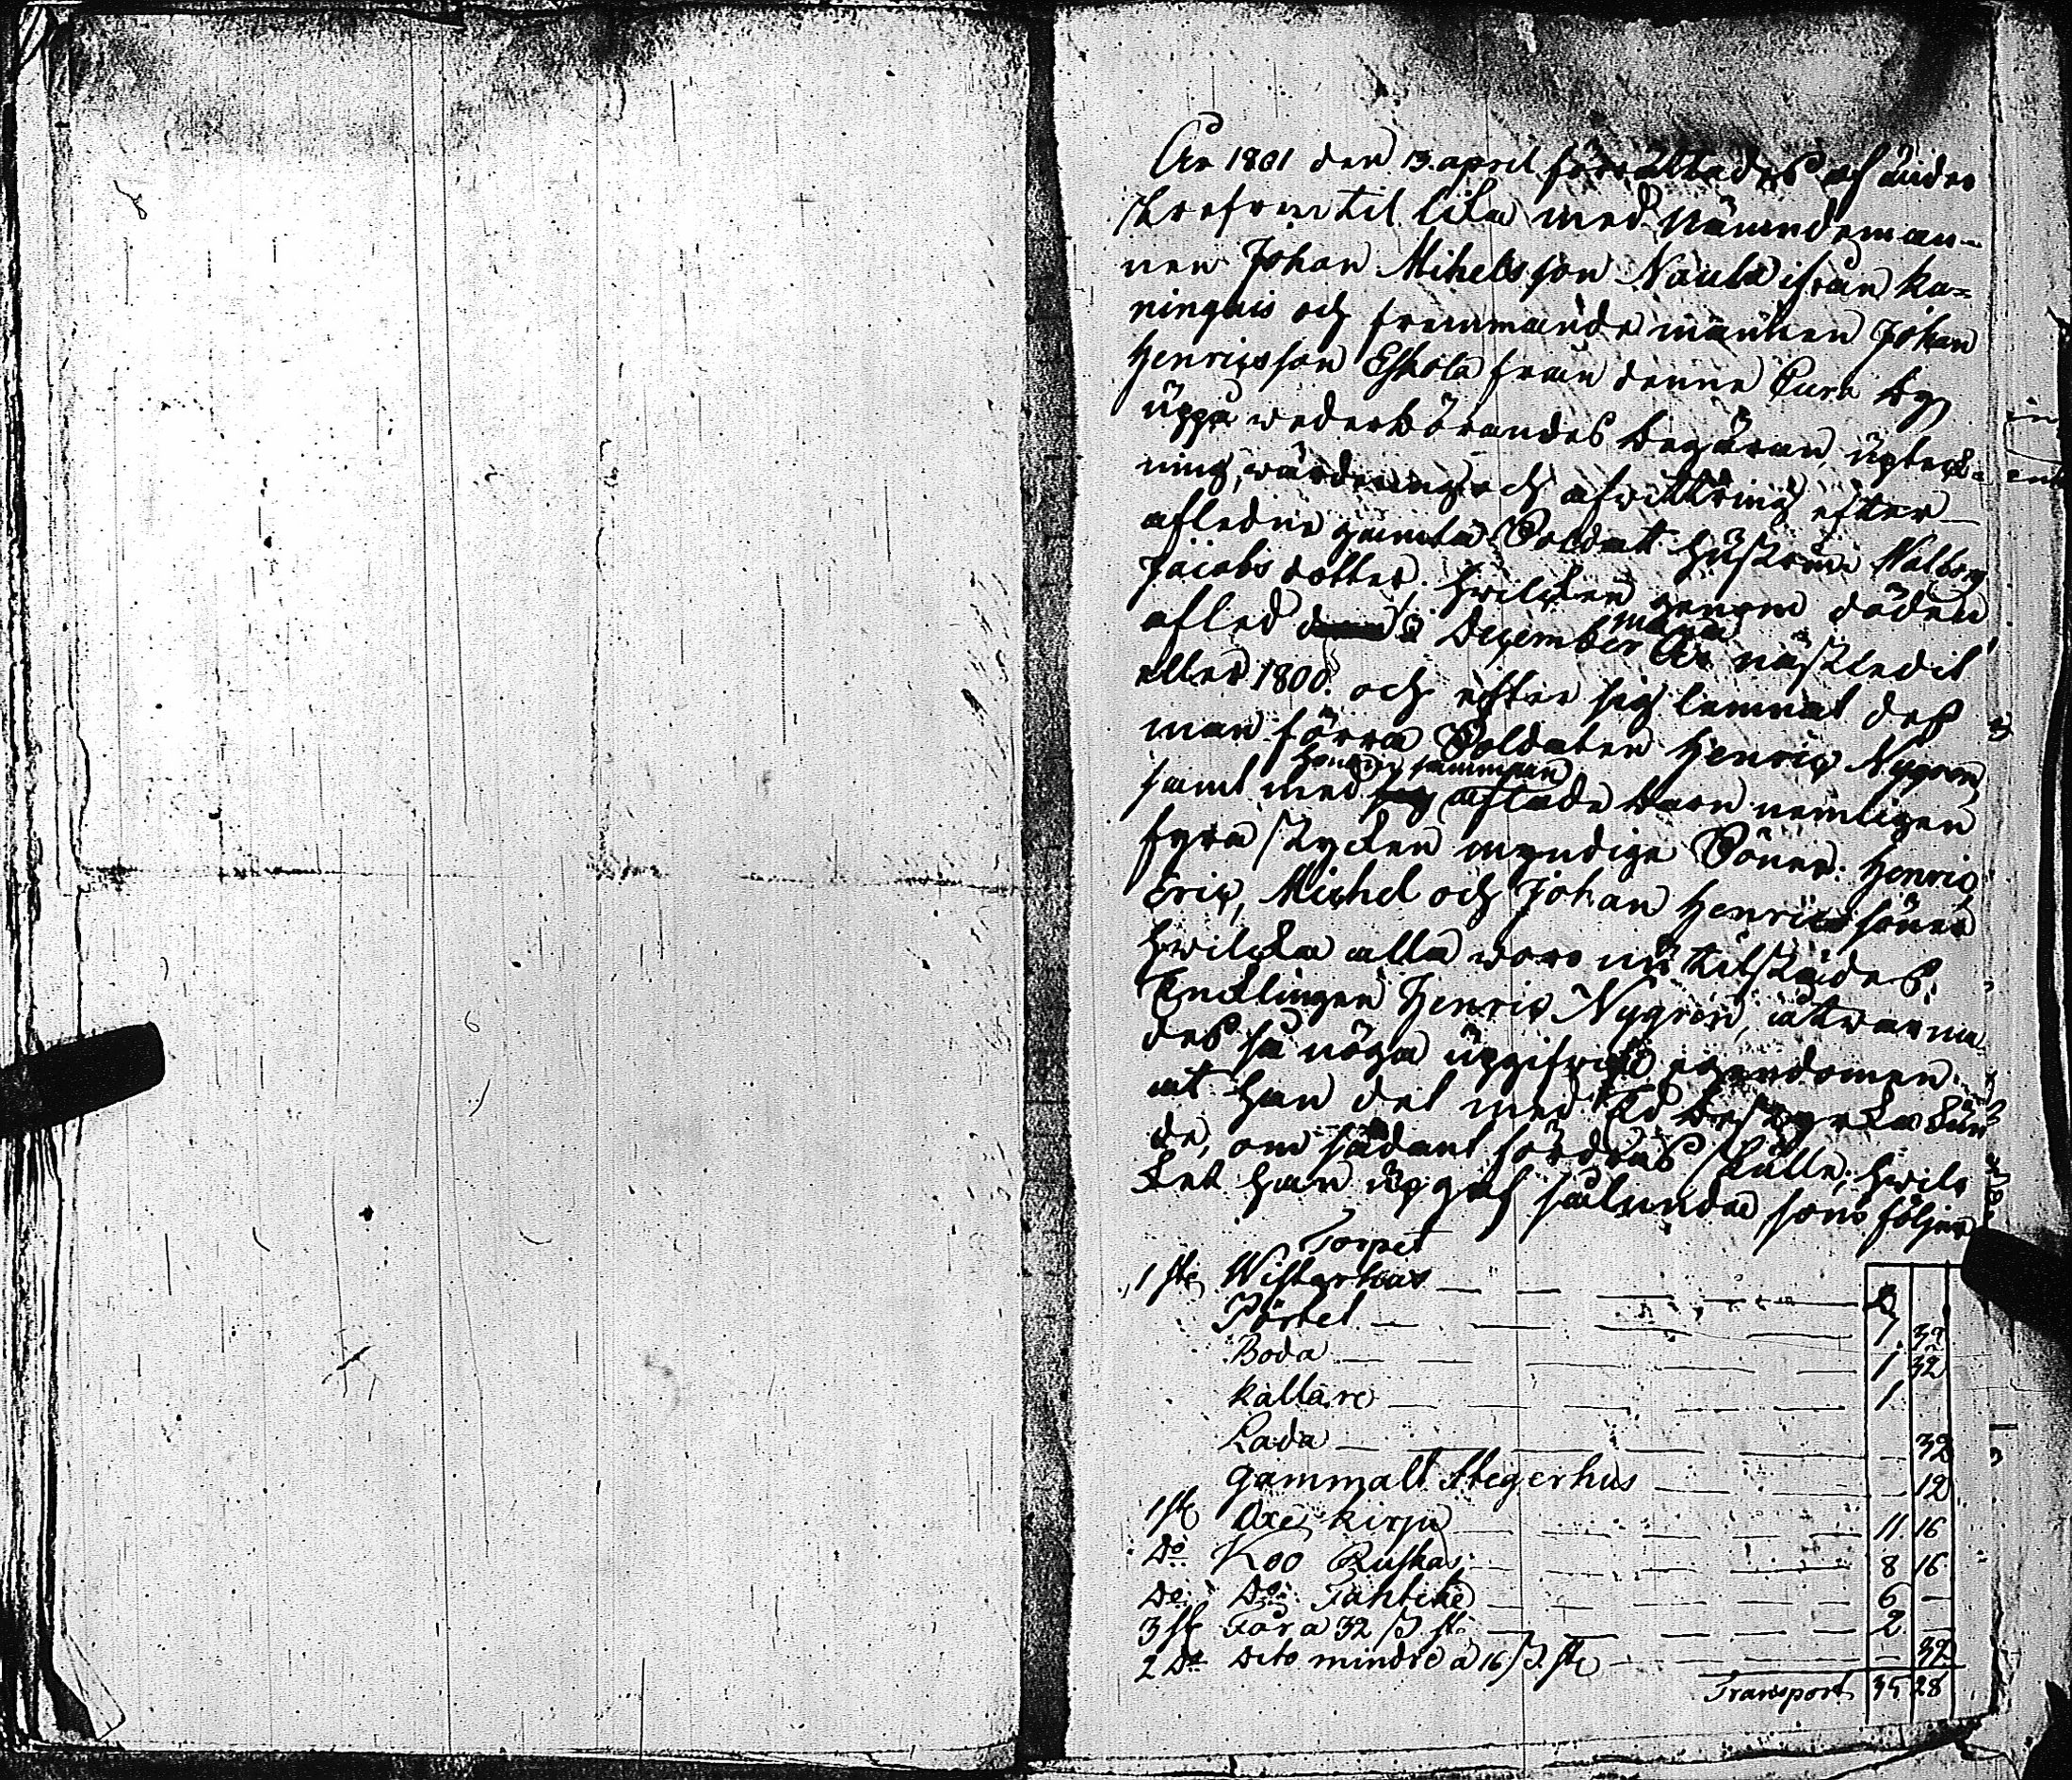 År 1801 den 13. april förrättades af under
skrefven til lika med Nämndeman-
nen Johan Mihelsson Naula ifrån Ka-
ningais och fremmande mannen Johan
Henricsson Eskola från denne Eura by
uppå wederbörandes begäran, upteck-
ning, wärdering och afwittring efter
aflednе gamla Soldatt hustrun Walborg
Jacobs dotter, hwilcken genom döden
afled i December månad År näst ledit
eller 1800. och efter sig lemnat dess
man förra Soldaten Henric Nygren
samt med honom samman aflade barn nemligen
fyra stycken myndige Söner: Henric
Eric, Michel och Johan Henrics söner
hwilcka alla woro nu tilstädes.
Encklingen Henric Nygren, åtwarna-
des så nöga uppgifva egendomen
at han det med Ed bestyrcka kun
de, om sådant fördras skulle; hwilc
ket han upgaf sålunda som följer
Torpet
1 st Wistarhus
Pörtet 7 32
Boda 1 32
Kallare 1
Lada 32
Gammalt Stegerhus 12
1 st Oxe Kirju 11 16
Do Koo Ruska 8 16
Do Do Tähtike 6 —
3 st Får a 32 s. st 2 —
2 Do Dito mindre a 16 s. st — 32
Transport 35 28